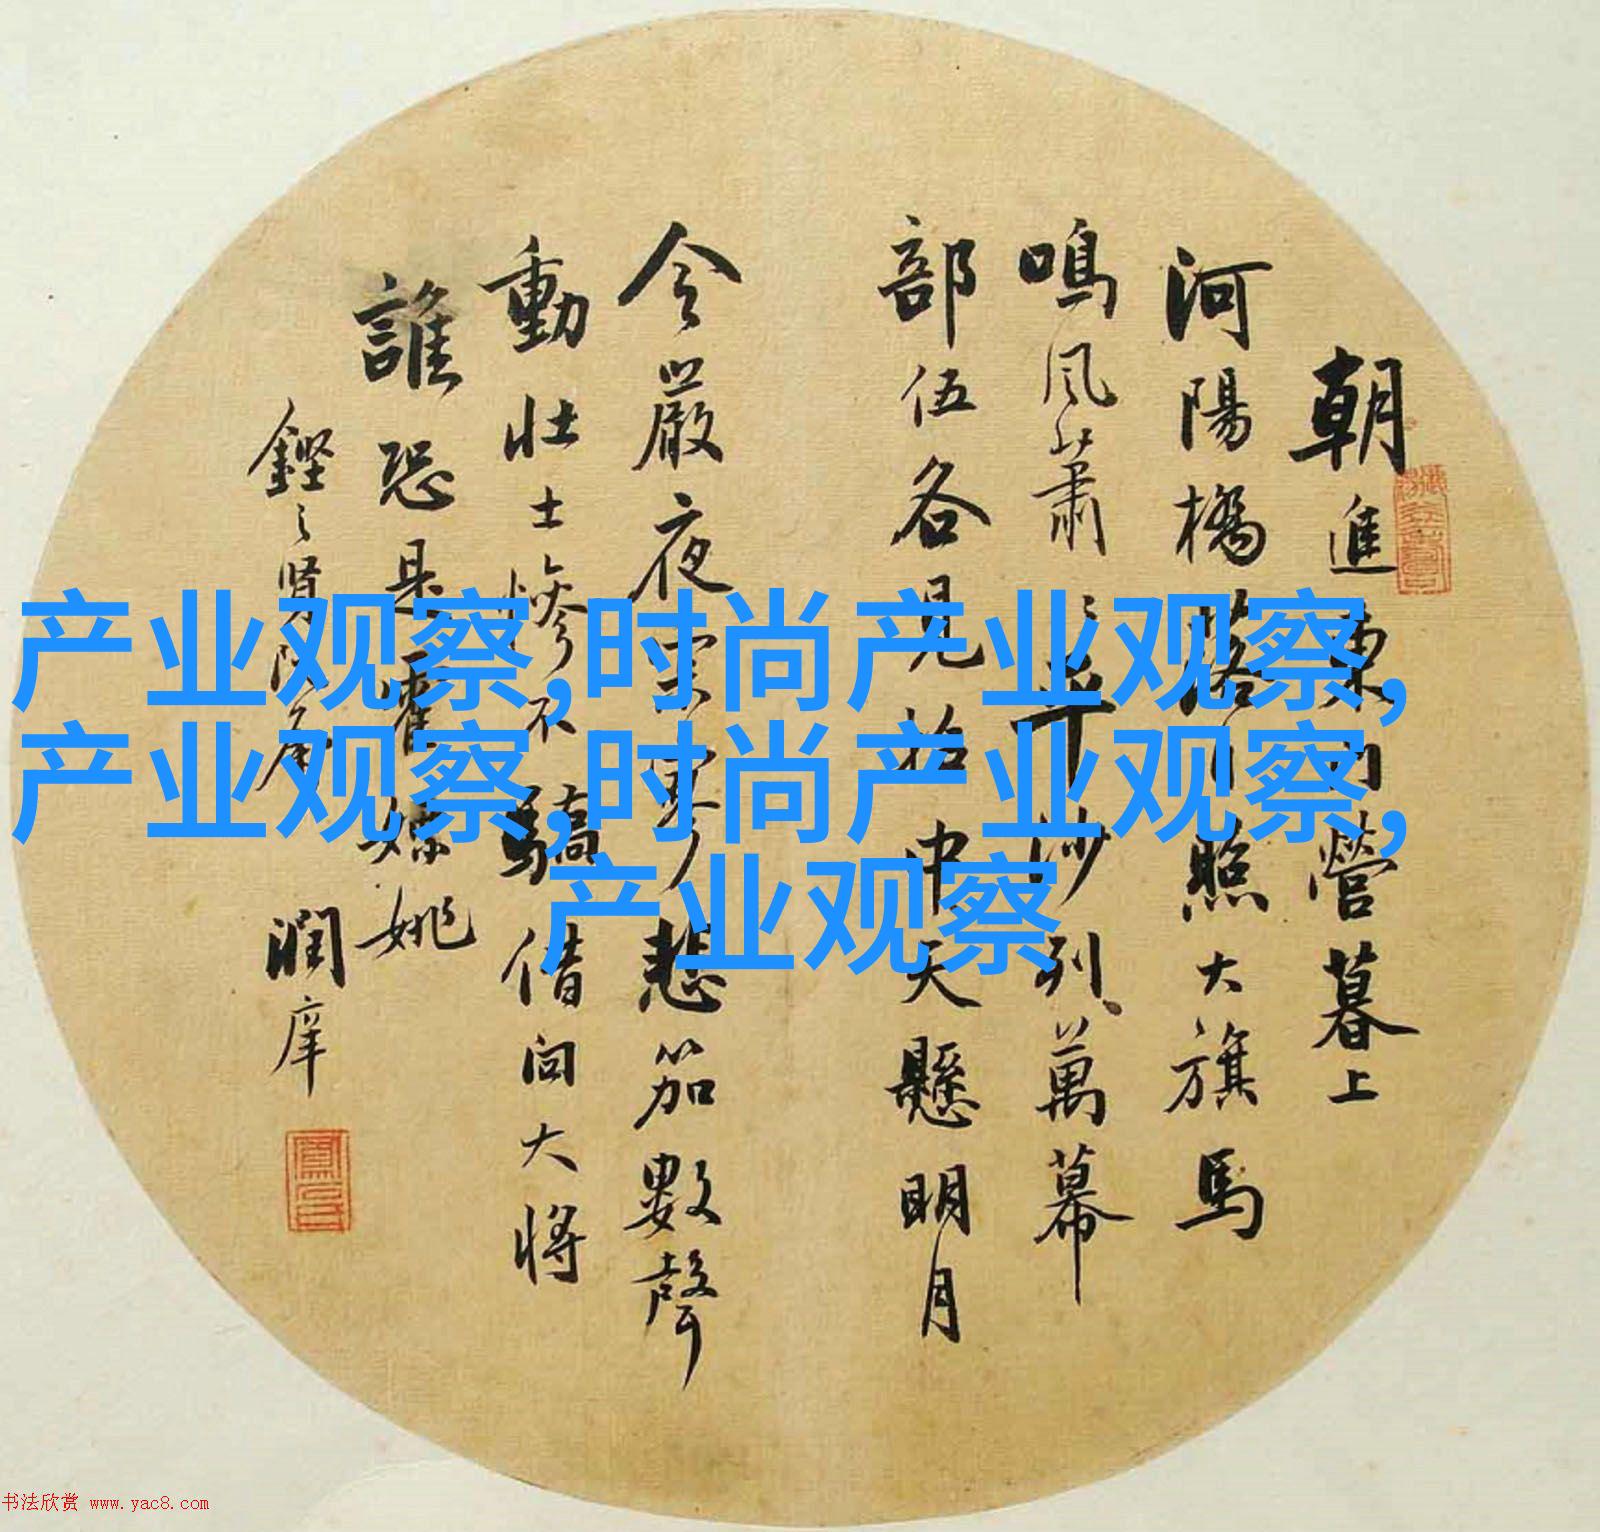 朝進東門營暮上
河陽橋落日照大旗馬
鳴風蕭〻平沙列萬幕
部伍各見招中天懸明月
令嚴夜寂寥悲笳數聲
動壯士慘不驕借問大將
誰恐是霍嫖姚
鏗之賢阮屬
潤庠
产业观察,时尚产业观察,
产业观察,时尚产业观察,
产业观察
书法欣赏 www.yac8.com